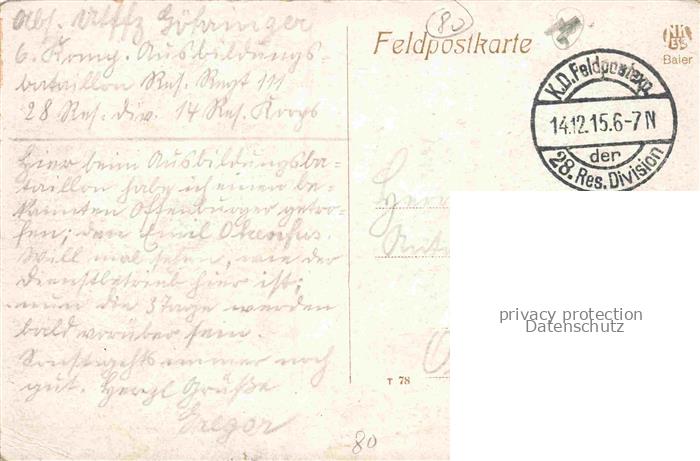 Abs. Utffz Göhringer
6. Komp. Ausbildungs-
bataillon Res. Regt 111
28 Res. div. 14 Res. Korps
Hier beim Ausbildungsba-
taillon habe ich einen be-
kannten Offenburger getro-
fen; den Emil
Will mal sehen, wie der
Dienstbetrieb hier ist;
nun die 3 Tage werden
bald vorüber sein.
Sonst gehts immer noch
gut. Herzl Grüße
Gregor
80
Feldpostkarte
Baier
K.D. Feldpostexp.
14.12.15.6-7 N
der
28. Res. Division
Herr
privacy protection
Datenschutz
T 78
80